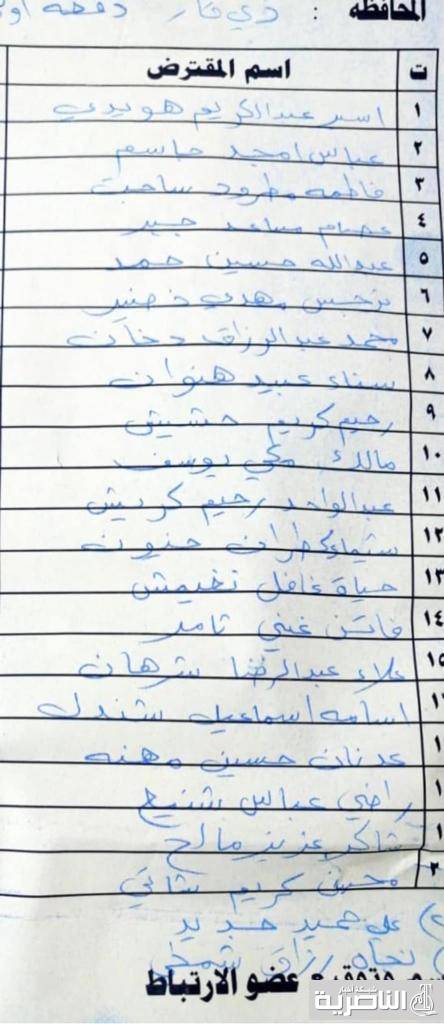 المحافظة : ذي قار دفعه
ت اسم المقترض
١ اسير عبدالكريم هويدي
٢ عباس امجد جاسم
٣ فاطمه مطرود ساجت
٤ عصام مساعد جبير
٥ عبدالله حسين حمد
٦ نرجس مهدي خضير
٧ محمد عبد الرزاق دخان
٨ سناء عبيد هنوان
٩ رحيم كريم حشيش
١٠ مالك مكي يوسف
١١ عبدالواحد رحيم كريش
١٢ شيماء كطران حنيونه
١٣ حياة غافل نغيمش
١٤ فاتن غني ثامر
١٥ علاء عبدالرضا شرهان
١ اسامه اسماعيل شندل
١ عدنان حسين مهنه
١ راضي عباس شنيع
١ شاكر عزيز مالح
٢ محسن كريم شاتي
علي حميد حديد
نجاه رزاق
عضو الارتباط
شبكة اخبار الناصرية